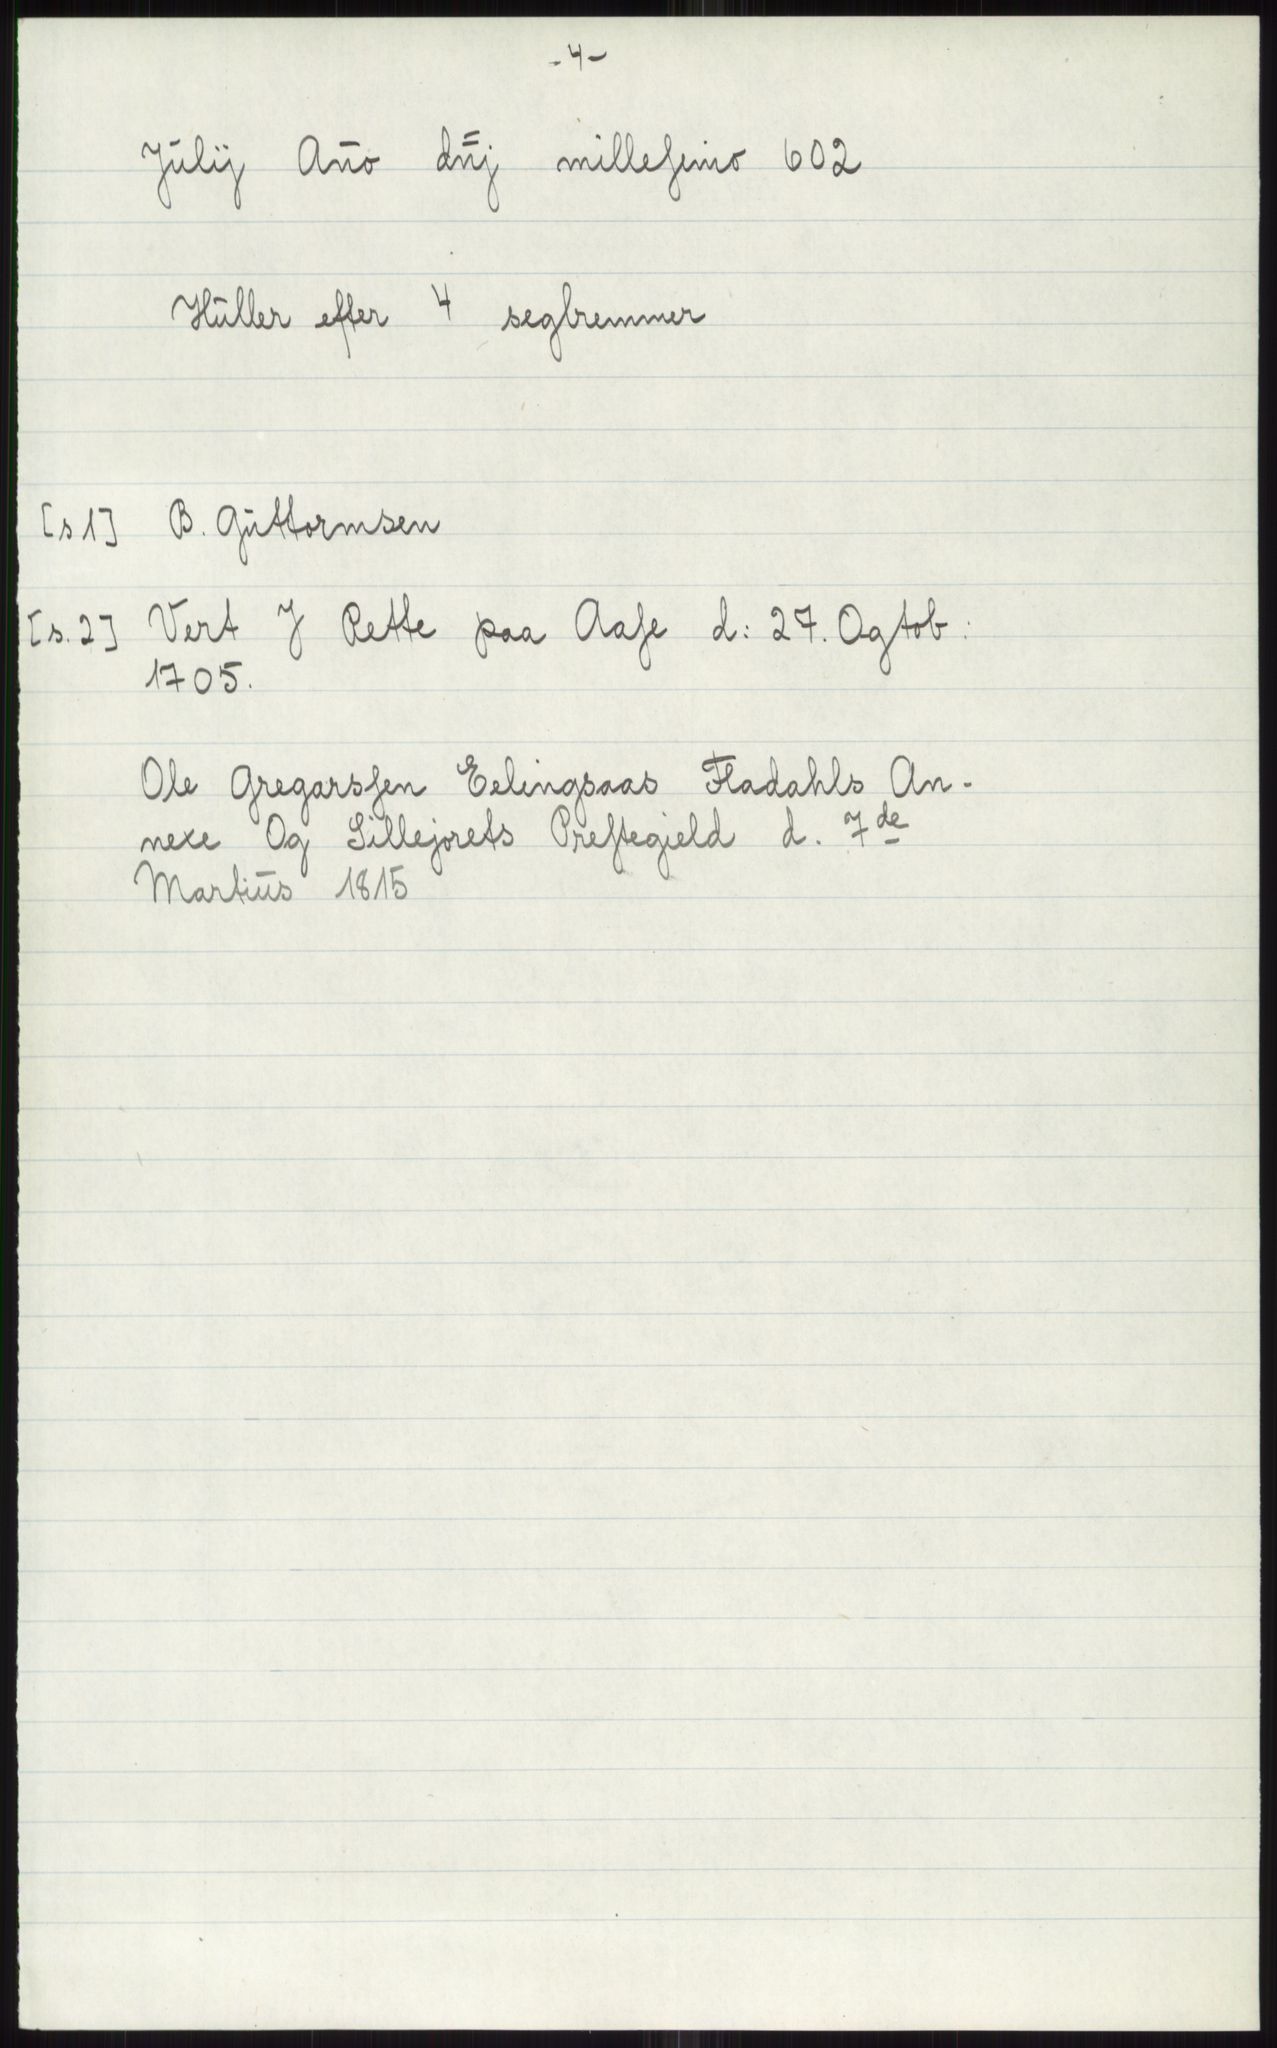 -4-
Júlij Año dn̄j milleſimo 602
Húller efter 4 seglremmer
[s 1] B. Gúttormsen
[s. 2] Vert J Rette paa Aaſe d: 27. Ogtob:
1705.
Ole Gregarsſen Eelingsaas Fladahls An-
nexe Og Sillejorets Preſtegield d. 7de
Martiūs 1815